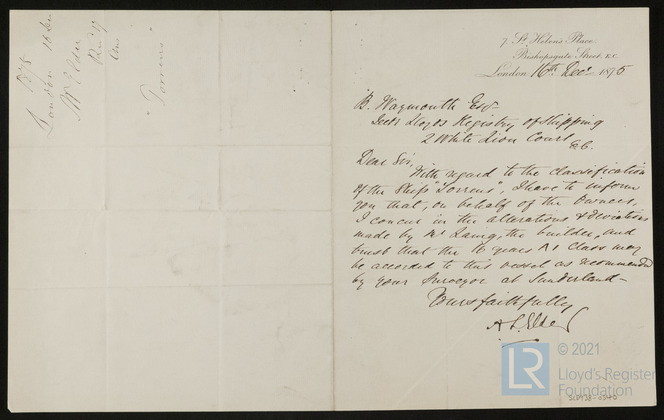 1875
London 16 Dec
W Elder
Torrens
7, St. Helen's Place,
Bishopsgate Street, E.C.
London 16th Decr 1875
B. Waymouth Esqr
Secy Lloyds Registry of Shipping
2 White Lion Court
E.C.
Dear Sir,
With regard to the classification
of the Ship "Torrens", I have to inform
you that, on behalf of the Owners,
I concur in the alterations & deviations
made by Mr Laing, the builder, and
trust that the 16 years A1 Class may
be accorded to this vessel as recommended
by your Surveyor at Sunderland—
Yours faithfully
A L Elder
© 2021
LR
Lloyd's Register
Foundation